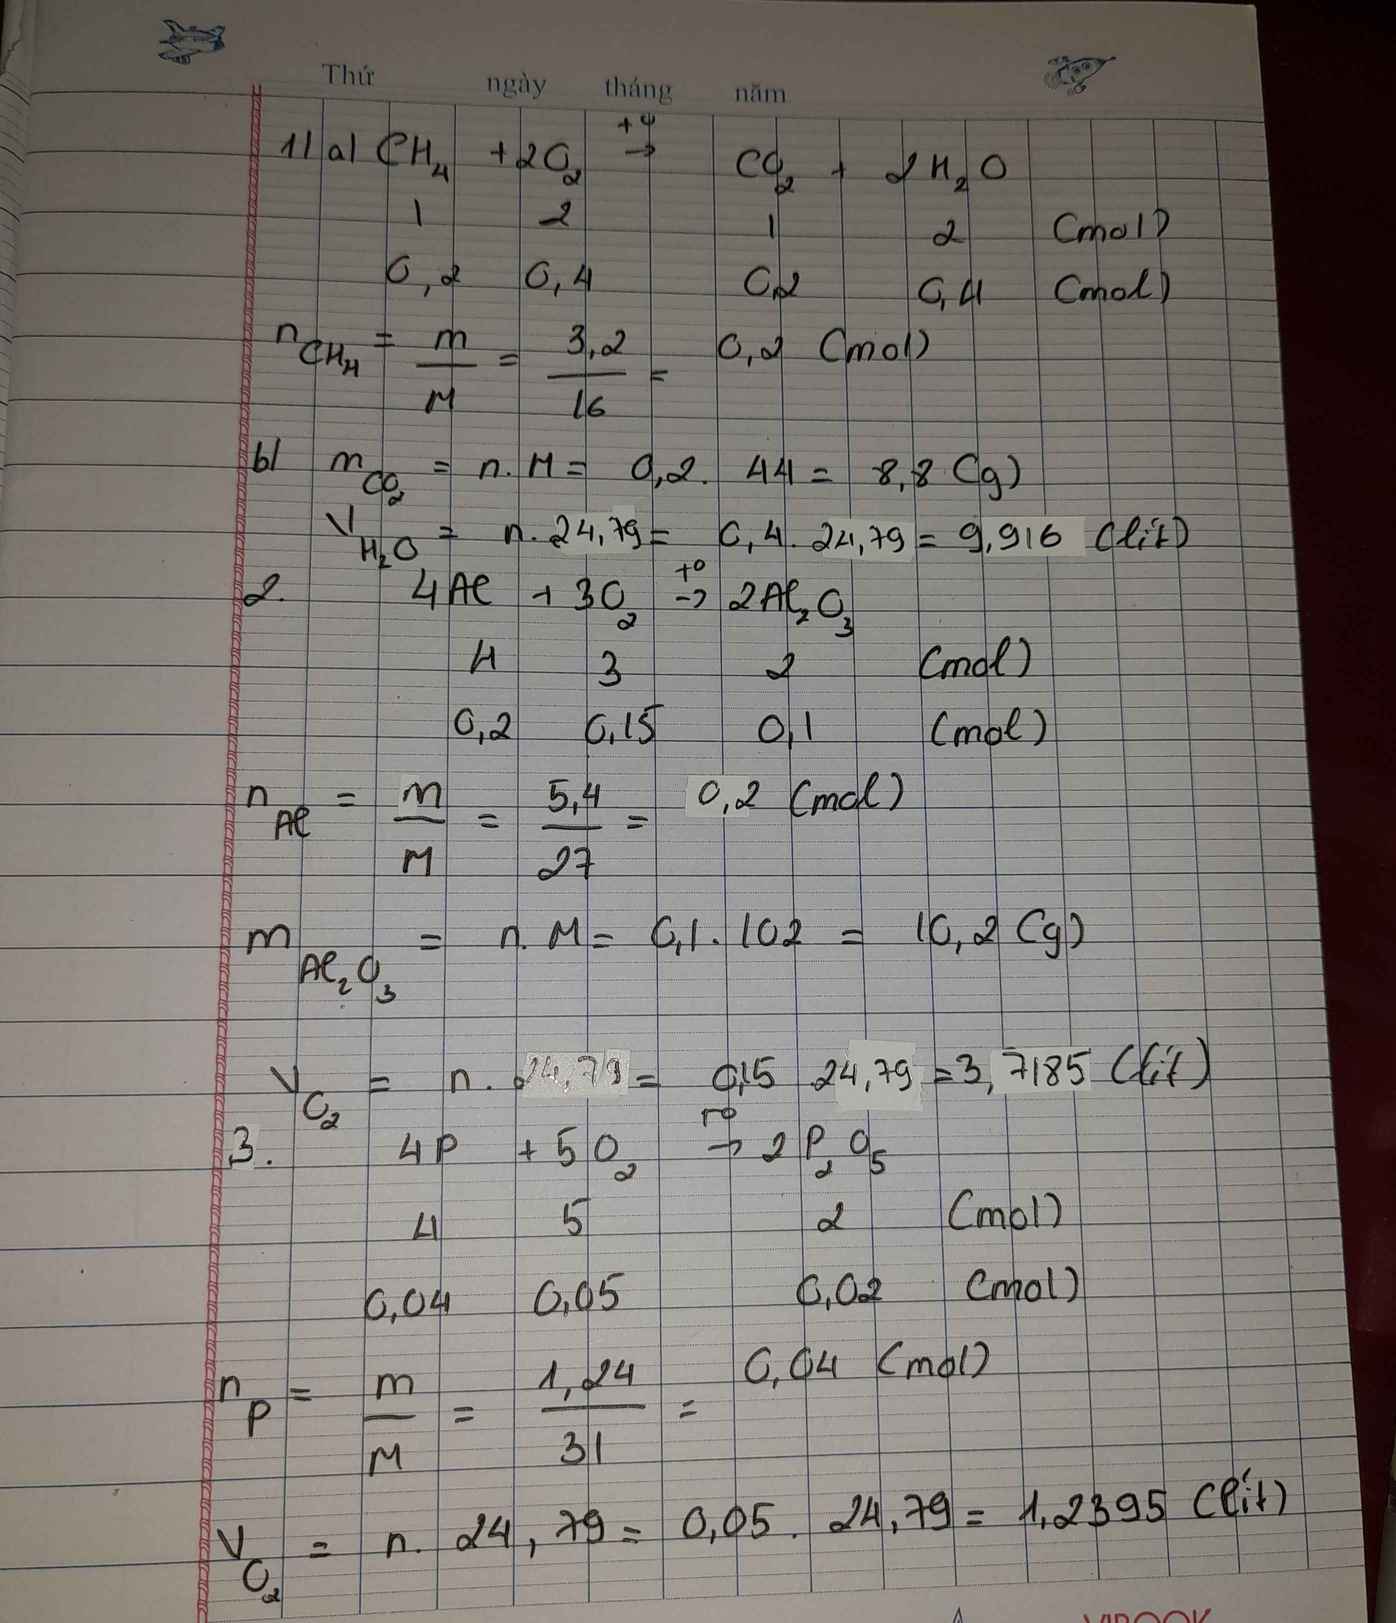 Thứ ngày tháng năm
1) a) CH₄ + 2O₂ t° → CO₂ + 2H₂O
1 2 1 2 (mol)
0,2 0,4 0,2 0,4 (mol)
n CH₄ = m/M = 3,2/16 = 0,2 (mol)
b) m CO₂ = n.M = 0,2. 44 = 8,8 (g)
V H₂O = n. 24,79 = 0,4. 24,79 = 9,916 (lít)
2. 4Al + 3O₂ t° → 2Al₂O₃
4 3 2 (mol)
0,2 0,15 0,1 (mol)
n Al = m/M = 5,4/27 = 0,2 (mol)
m Al₂O₃ = n.M = 0,1.102 = 10,2 (g)
V O₂ = n. 24,79 = 0,15 24,79 = 3,7185 (lít)
3. 4P + 5O₂ t° → 2P₂O₅
4 5 2 (mol)
0,04 0,05 0,02 (mol)
n P = m/M = 1,24/31 = 0,04 (mol)
V O₂ = n. 24,79 = 0,05. 24,79 = 1,2395 (lít)